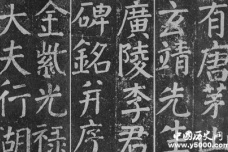 有唐茅
玄靖先生
廣陵李君
碑銘并序
金紫光祿
大夫行胡
中国历史网
www.y5000.com